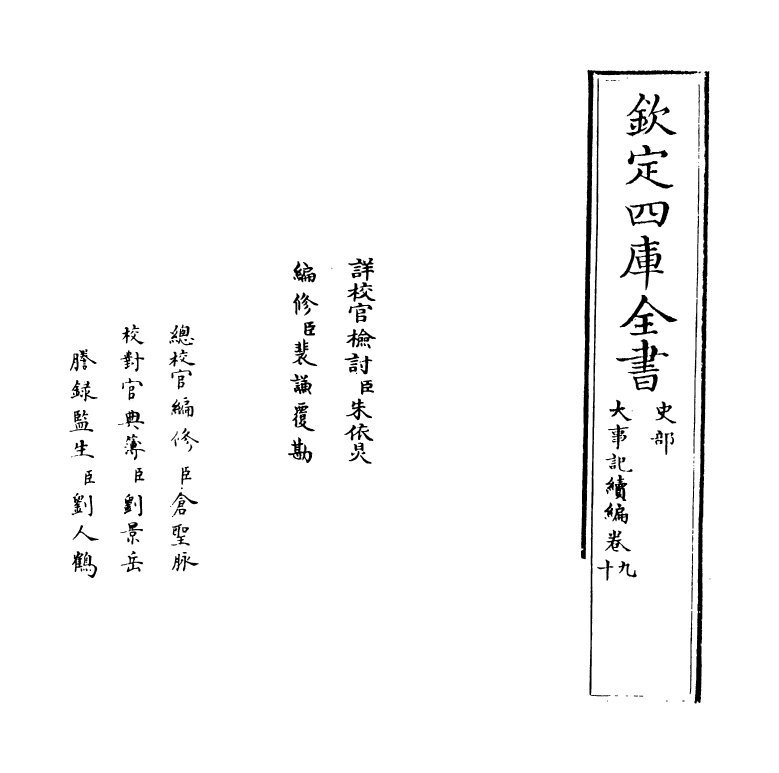 欽定四庫全書
史部
大事記續編卷九
十
詳校官檢討臣朱依炅
編修臣裴謙覆勘
總校官編修臣倉聖脉
校對官典簿臣劉景岳
謄録監生臣劉人鶴